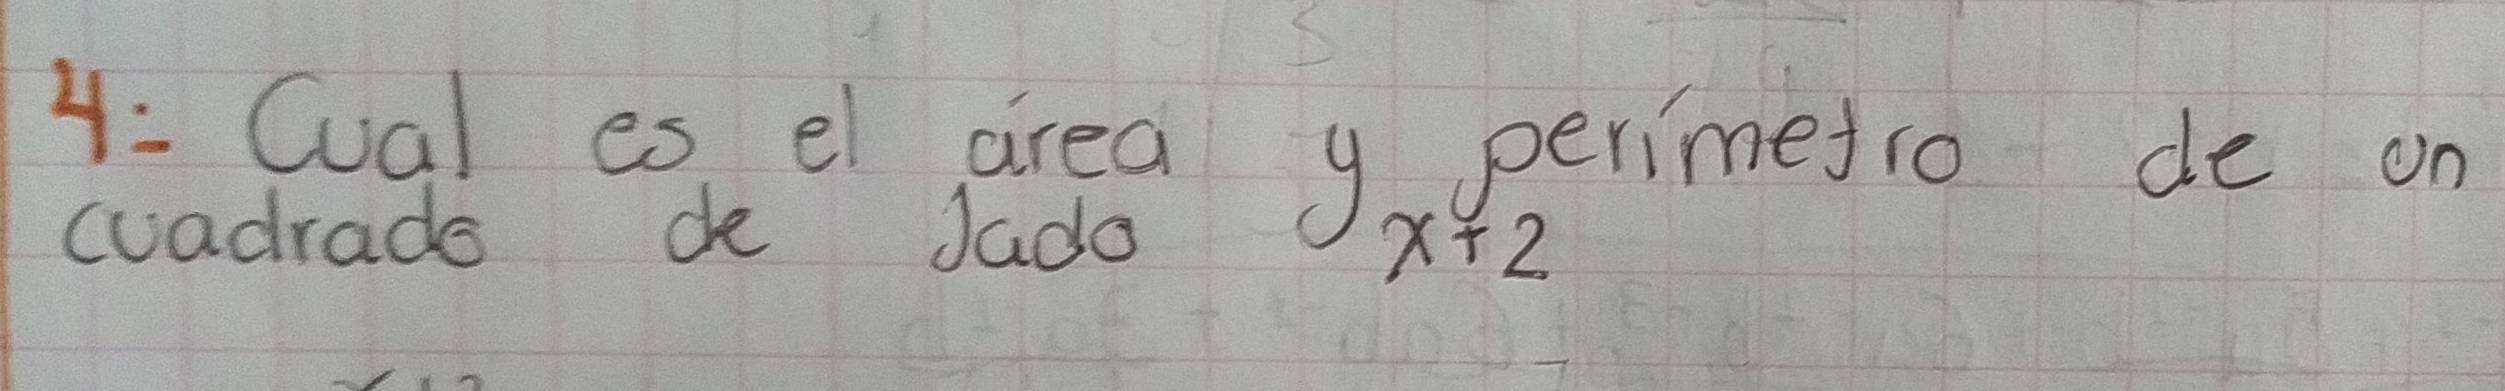 4:- Cual es el área y perímetro de un
cuadrado de lado x+2